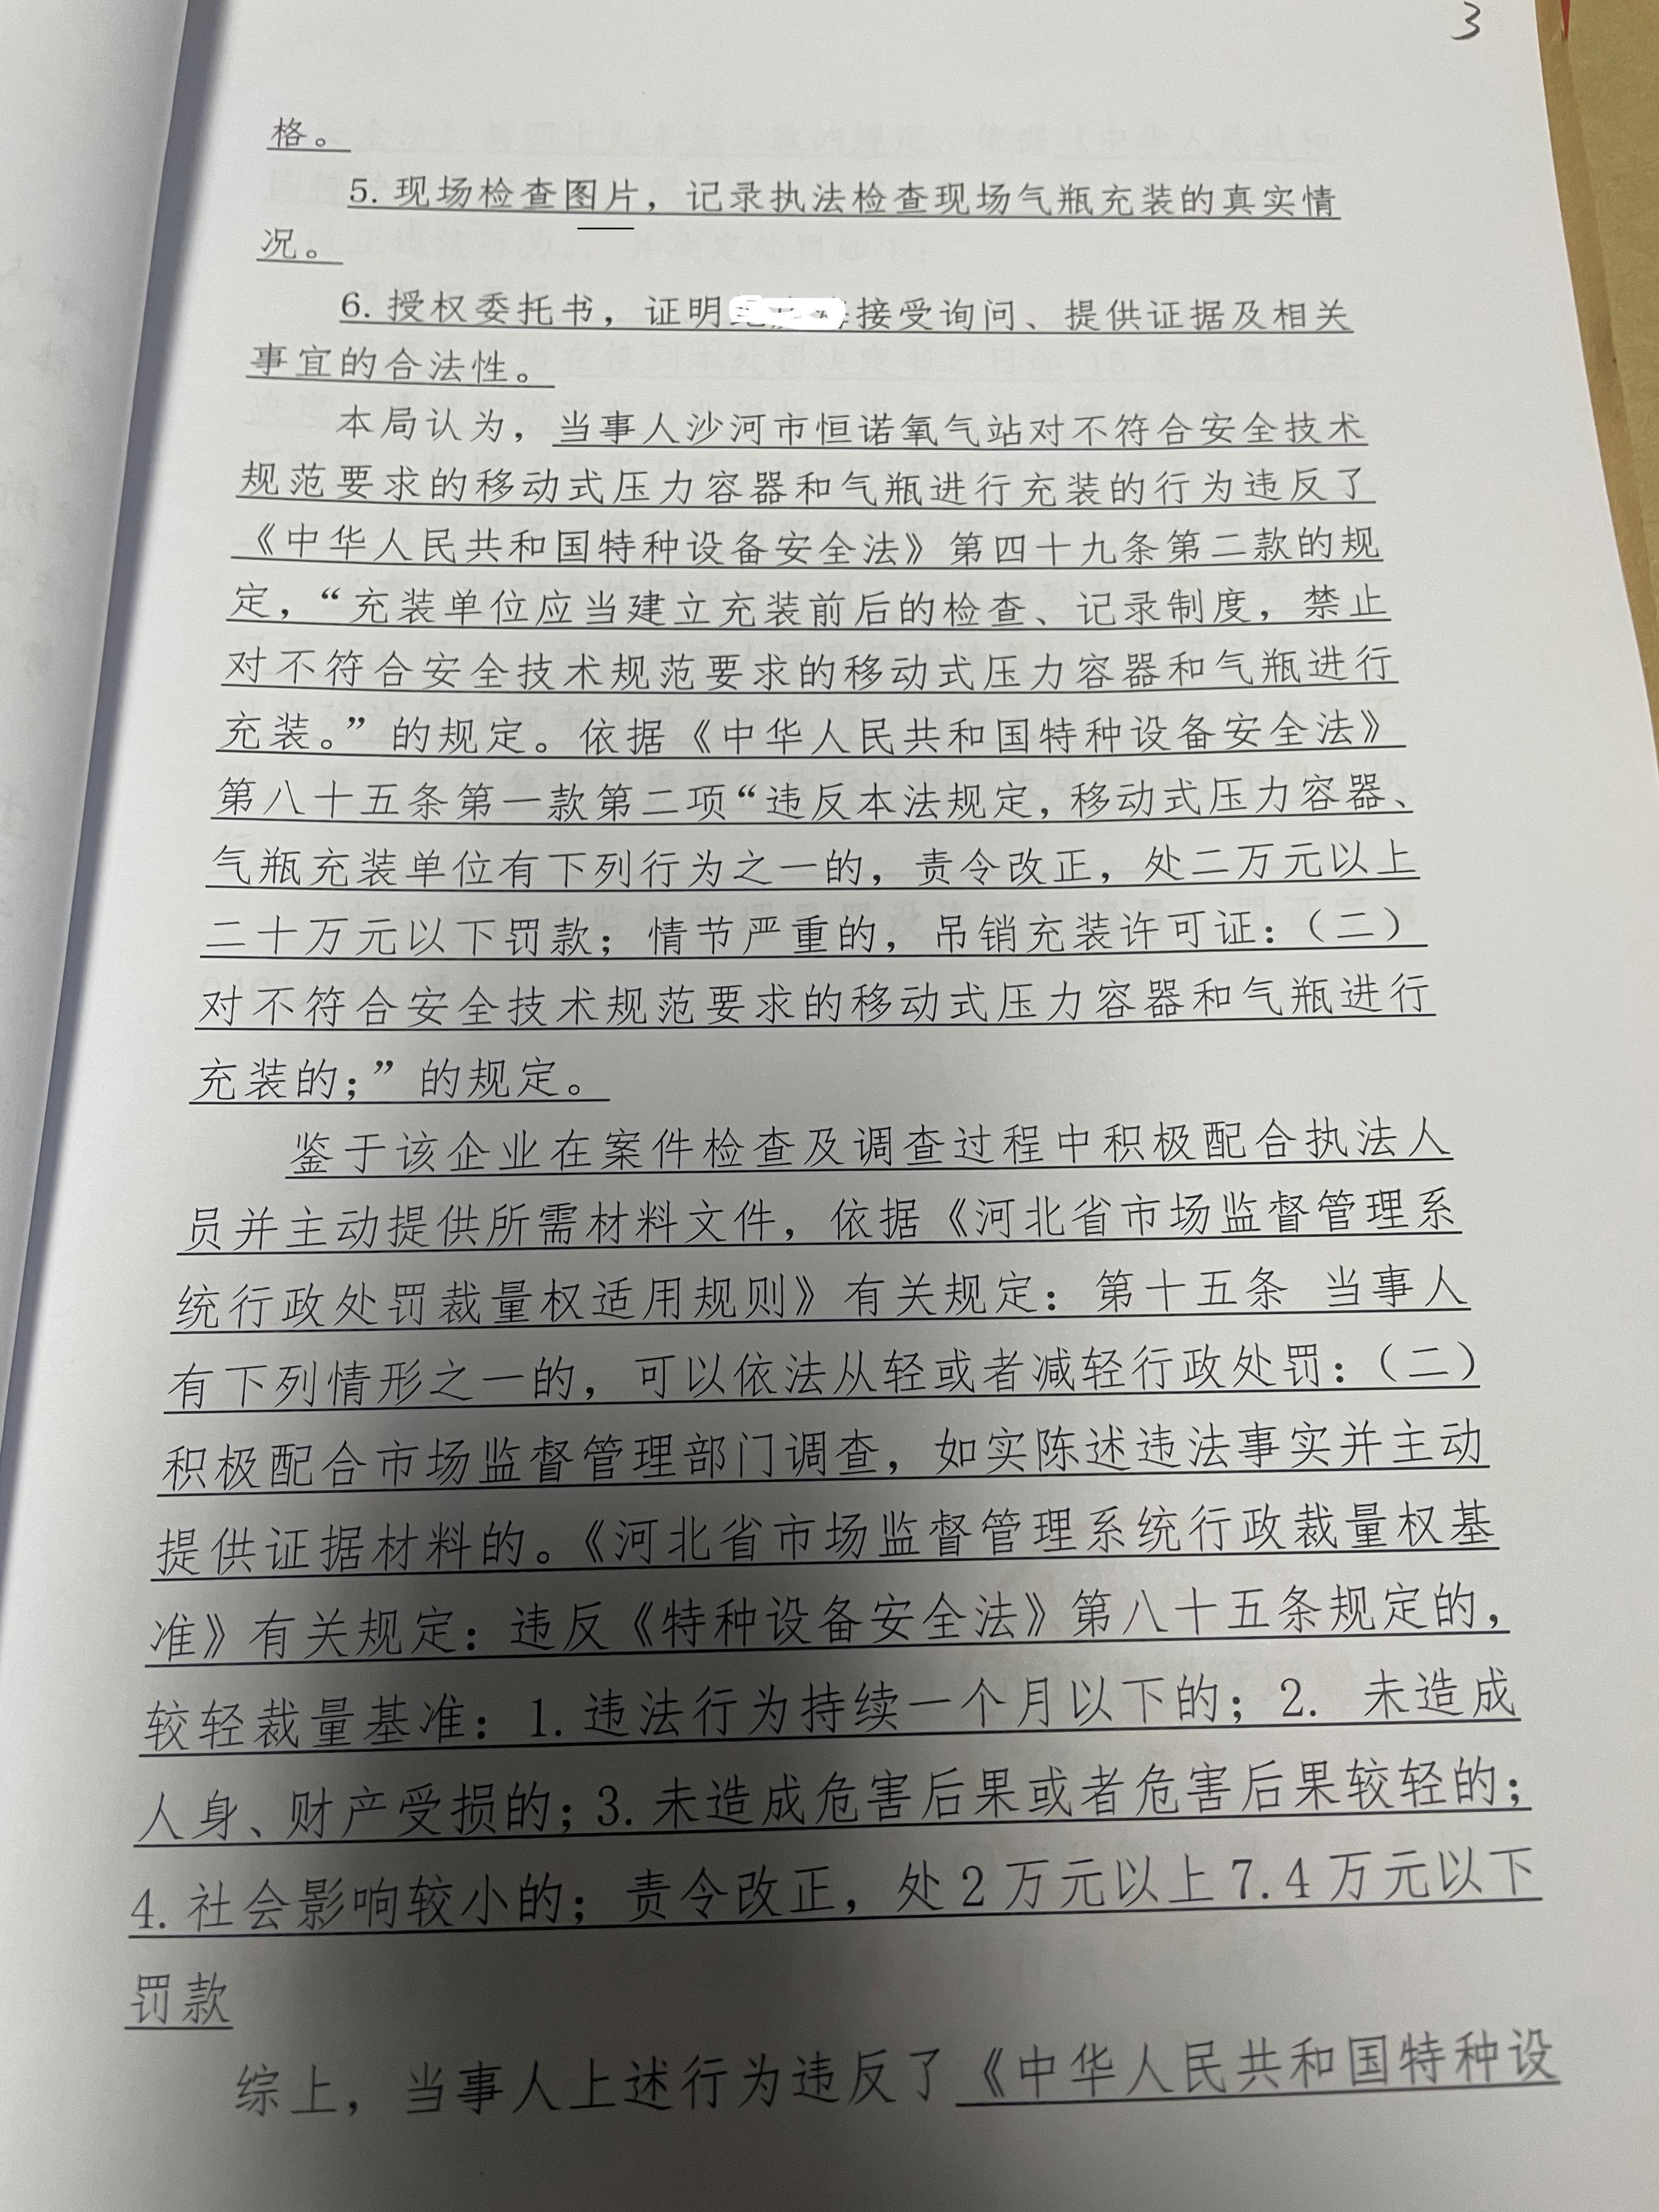 3
格。
5. 现场检查图片，记录执法检查现场气瓶充装的真实情
况。
6. 授权委托书，证明接受询问、提供证据及相关
事宜的合法性。
本局认为，当事人沙河市恒诺氧气站对不符合安全技术
规范要求的移动式压力容器和气瓶进行充装的行为违反了
《中华人民共和国特种设备安全法》第四十九条第二款的规
定，“充装单位应当建立充装前后的检查、记录制度，禁止
对不符合安全技术规范要求的移动式压力容器和气瓶进行
充装。”的规定。依据《中华人民共和国特种设备安全法》
第八十五条第一款第二项“违反本法规定，移动式压力容器、
气瓶充装单位有下列行为之一的，责令改正，处二万元以上
二十万元以下罚款；情节严重的，吊销充装许可证：（二）
对不符合安全技术规范要求的移动式压力容器和气瓶进行
充装的；”的规定。
鉴于该企业在案件检查及调查过程中积极配合执法人
员并主动提供所需材料文件，依据《河北省市场监督管理系
统行政处罚裁量权适用规则》有关规定：第十五条 当事人
有下列情形之一的，可以依法从轻或者减轻行政处罚：（二）
积极配合市场监督管理部门调查，如实陈述违法事实并主动
提供证据材料的。《河北省市场监督管理系统行政裁量权基
准》有关规定：违反《特种设备安全法》第八十五条规定的，
较轻裁量基准：1. 违法行为持续一个月以下的；2. 未造成
人身、财产受损的；3. 未造成危害后果或者危害后果较轻的；
4. 社会影响较小的；责令改正，处 2 万元以上 7.4 万元以下
罚款
综上，当事人上述行为违反了《中华人民共和国特种设